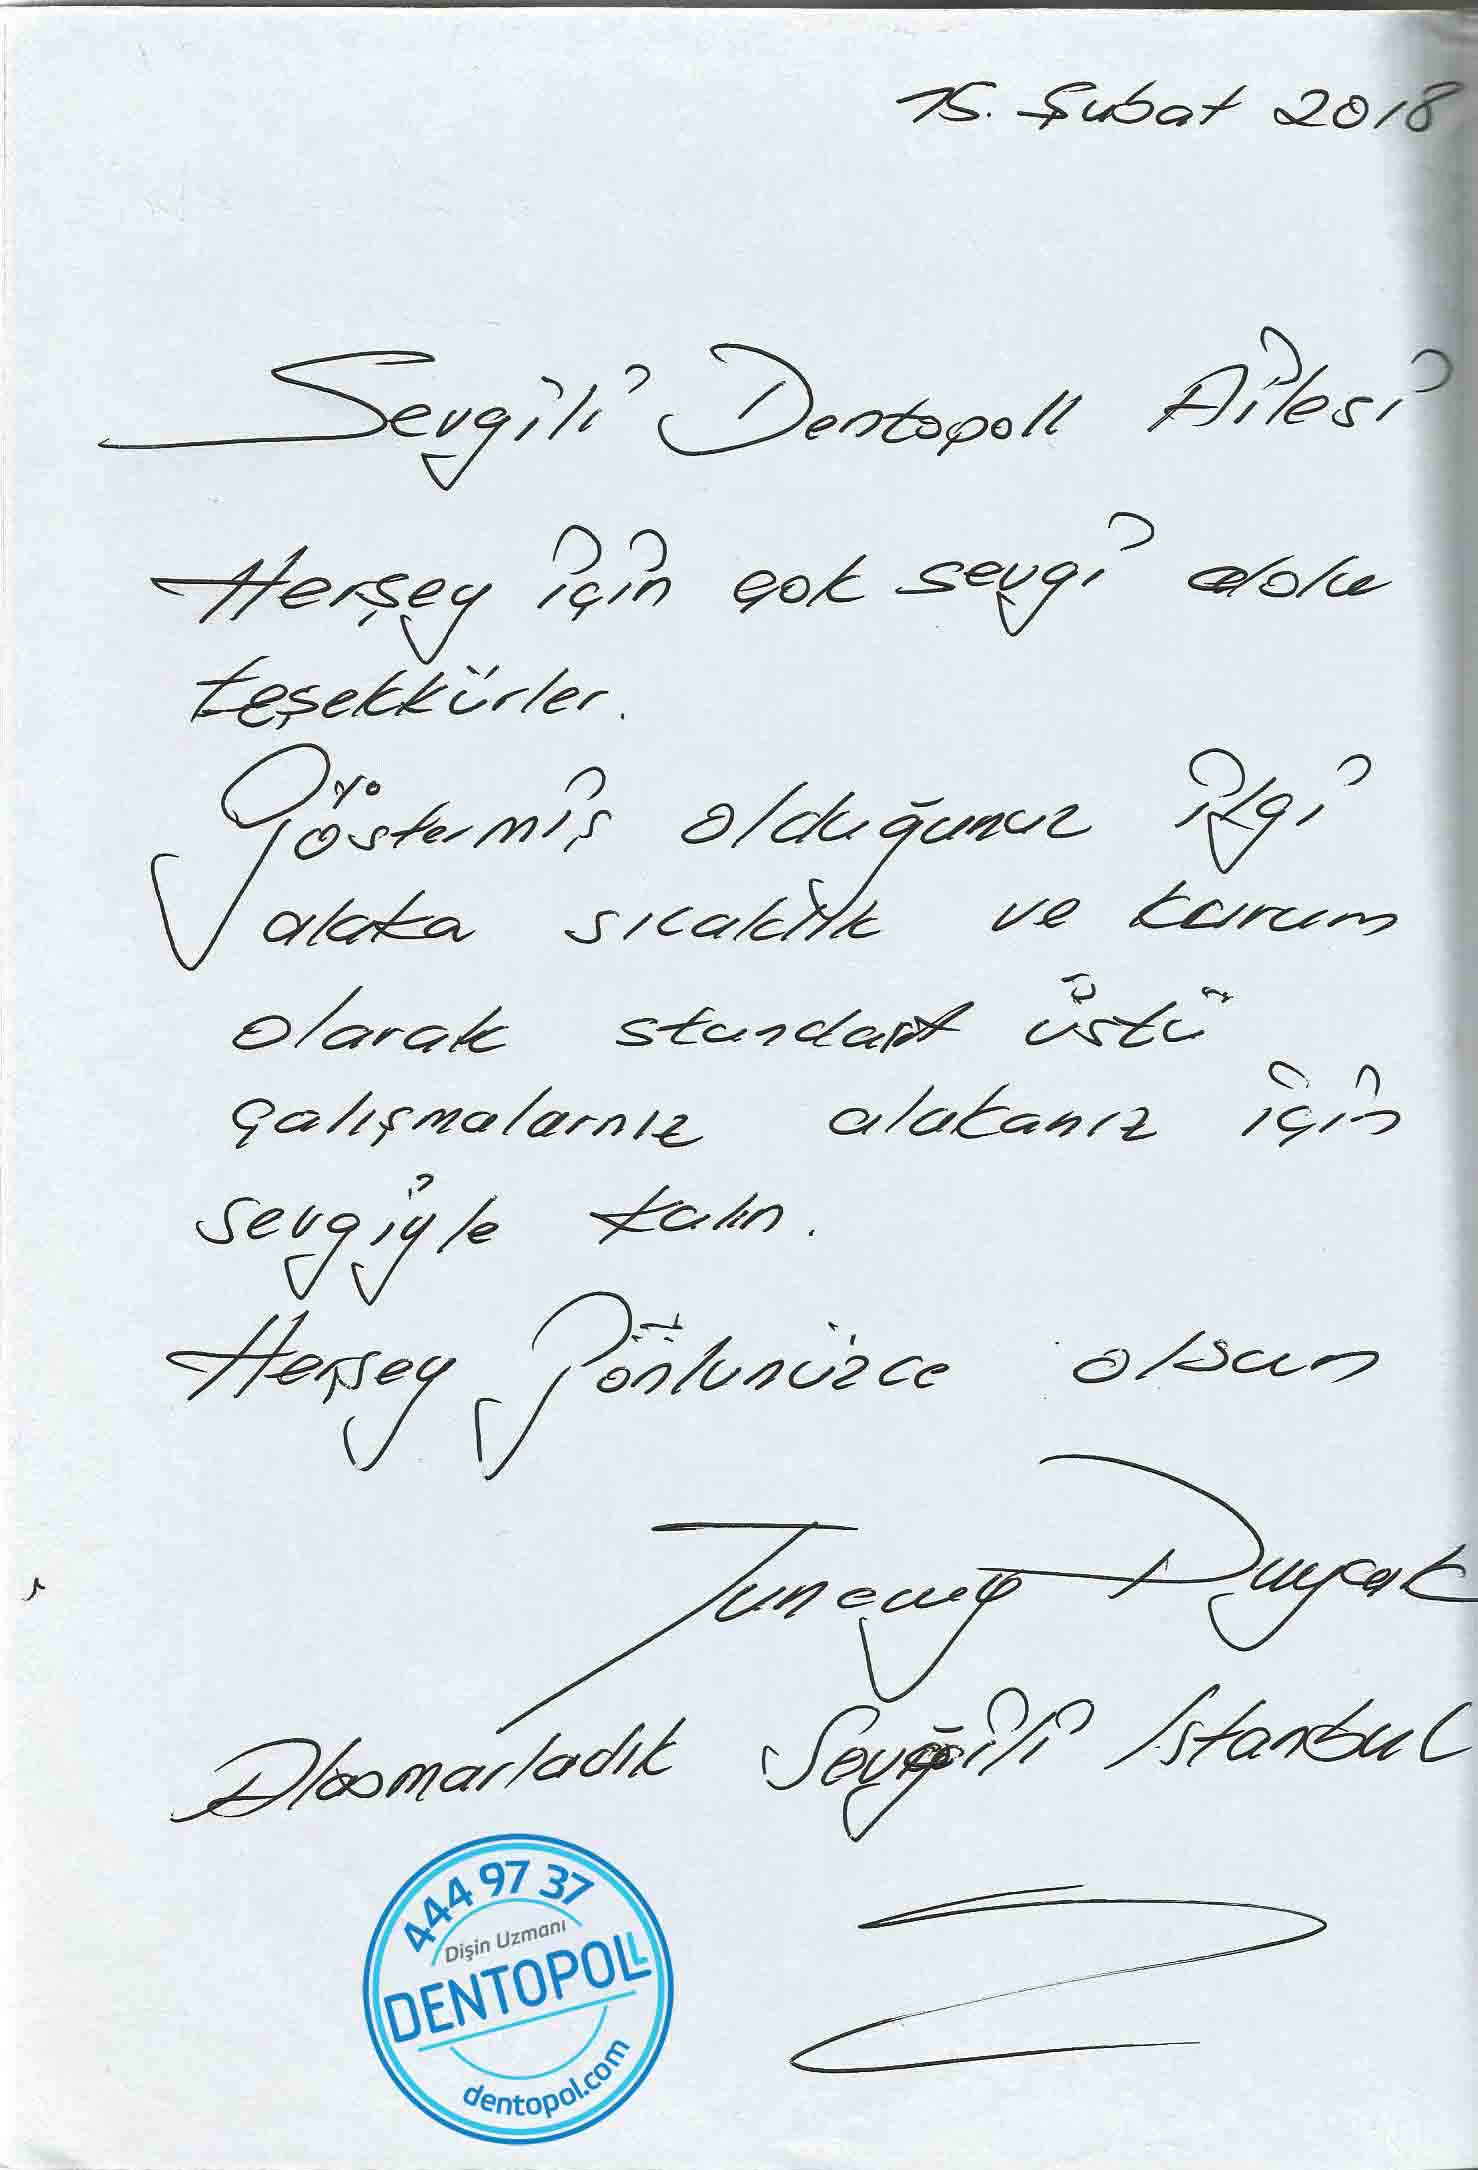 15. Şubat 2018
Sevgili Dentopoll Ailesi
Herşey için çok sevgi dolu
teşekkürler.
Göstermiş olduğunuz ilgi
alaka sıcaklık ve kurum
olarak standart üstü
çalışmalarnız alakanız için
sevgiyle kalın.
Herşey gönlunüzce olsun
Tuncay
Alasmarladık Sevgili Istanbul
444 97 37
Dişin Uzmanı
DENTOPOLL
dentopol.com